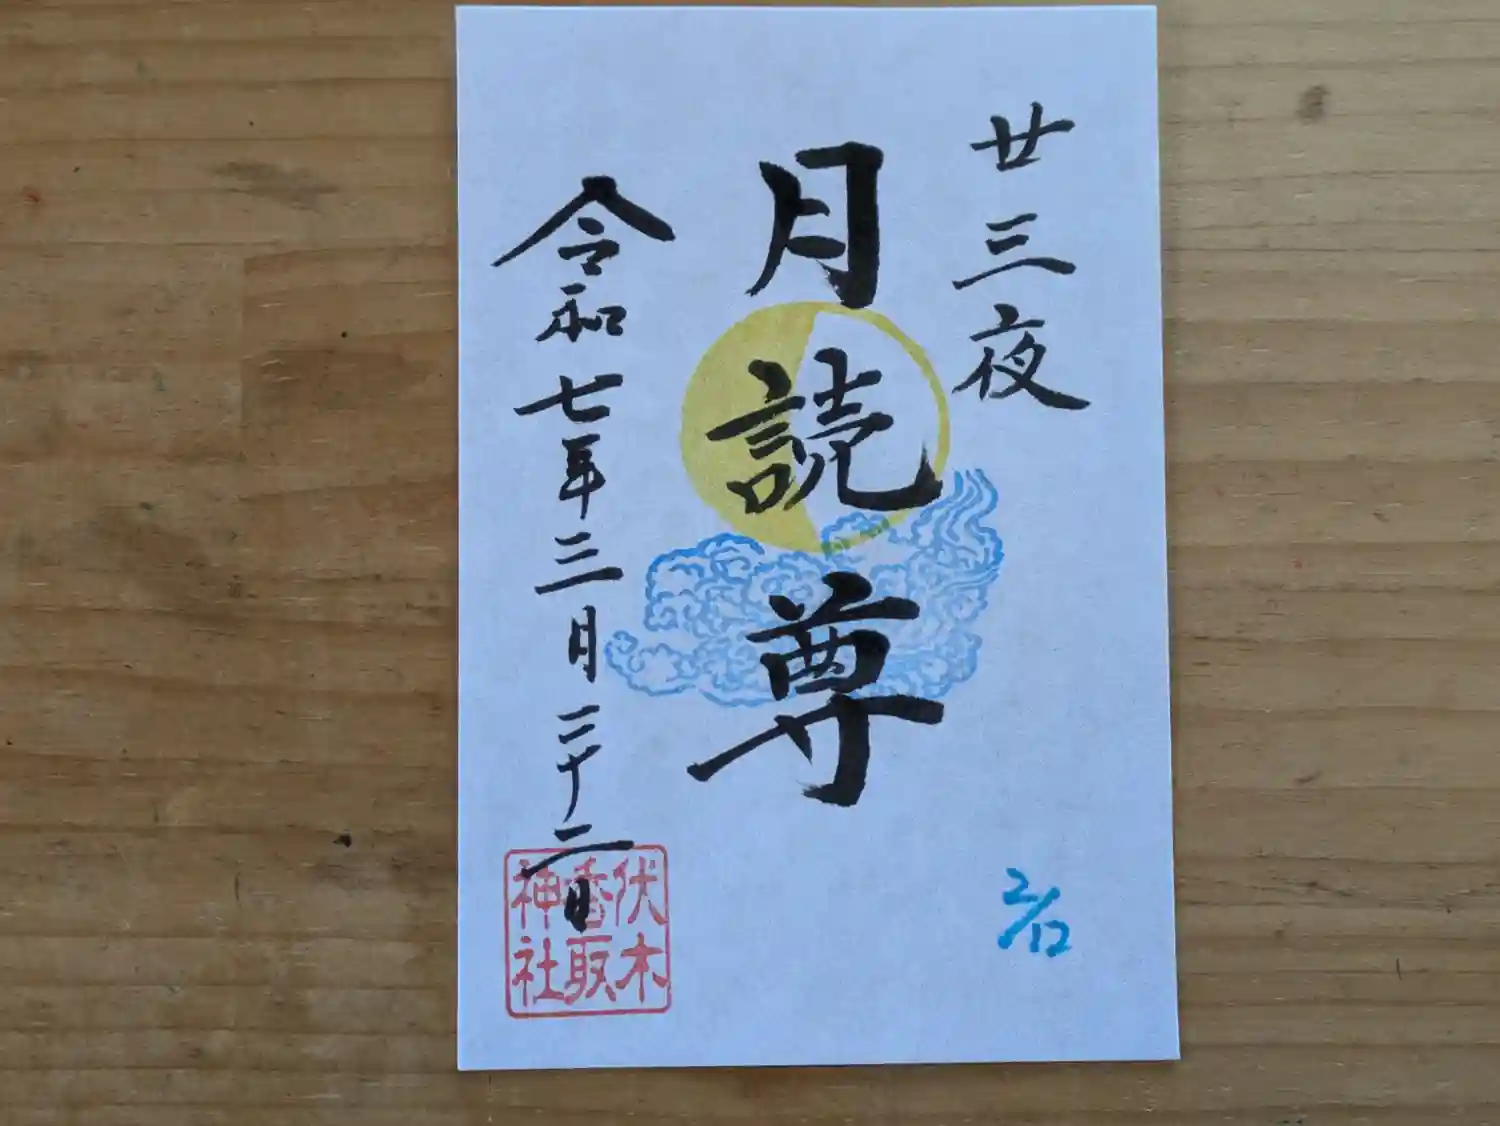 廿三夜
月読尊
令和七年三月二十二日
伏木
香取
神社
2/12